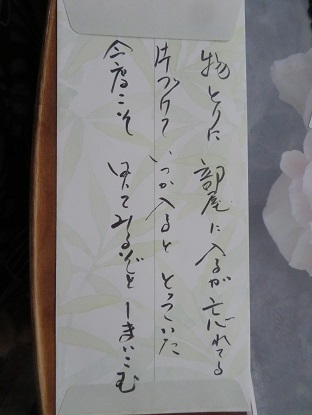 物とりに 部屋に入るが 忘れてる
片づけて いつか入ると とっといた
今度こそ はいてみるぞと しまいこむ